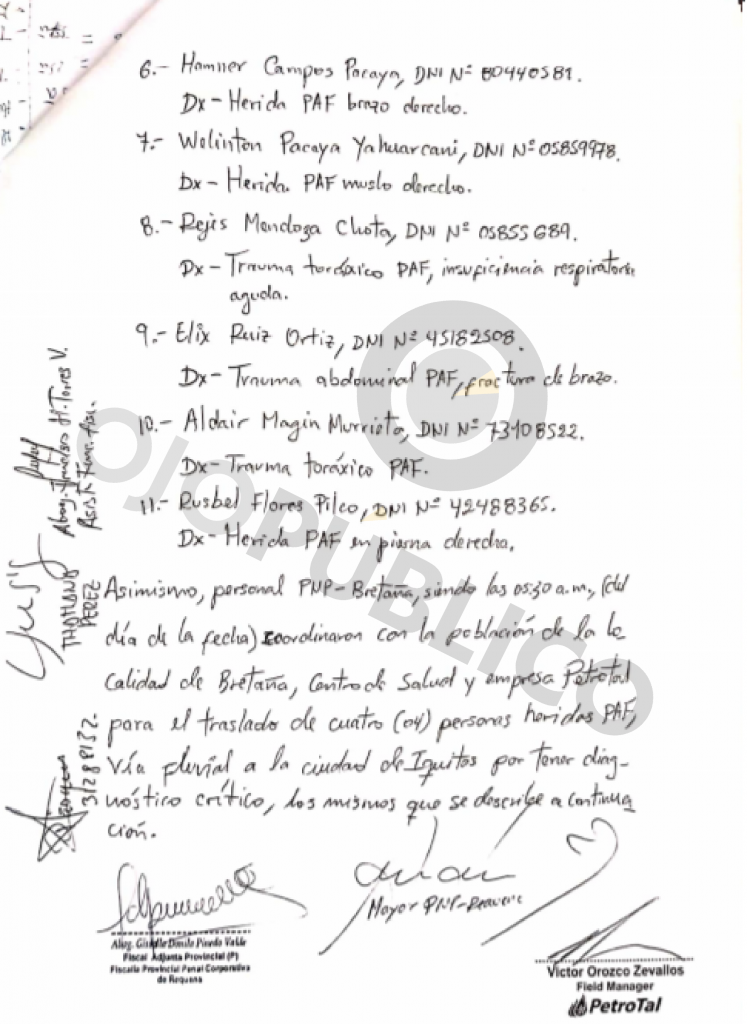 6.- Hamner Campos Pacaya, DNI Nº 80440581.
Dx - Herida PAF brazo derecho.
7.- Welinton Pacaya Yahuarcani, DNI Nº 05859978.
Dx - Herida PAF muslo derecho.
8.- Rejis Mendoza Chota, DNI Nº 05855689.
Dx - Trauma toráxico PAF, insuficiencia respiratoria
aguda.
9.- Elix Ruiz Ortiz, DNI Nº 45182508.
Dx - Trauma abdominal PAF, fractura de brazo.
10.- Aldair Magin Murrieta, DNI Nº 73108522.
Dx - Trauma toráxico PAF.
11.- Rusbel Flores Pilco, DNI Nº 42488365.
Dx - Herida PAF en pierna derecha.
Asimismo, personal PNP-Bretaña, siendo las 05:30 a.m, (del
día de la fecha) coordinaron con la población de la lo
calidad de Bretaña, Centro de Salud y empresa Petrotal
para el traslado de cuatro (04) personas heridas PAF,
vía fluvial a la ciudad de Iquitos por tener diag-
nóstico crítico, los mismos que se describe a continua
ción.
Abog. Francisco H. Torres V.
PEREZ
31288132.
Mayor PNP-
Abog. Pinedo Valle
Fiscal Adjunta Provincial (P)
Fiscalía Provincial Penal Corporativa
de Requena
Victor Orozco Zevallos
Field Manager
PetroTal
OJOPUBLICO